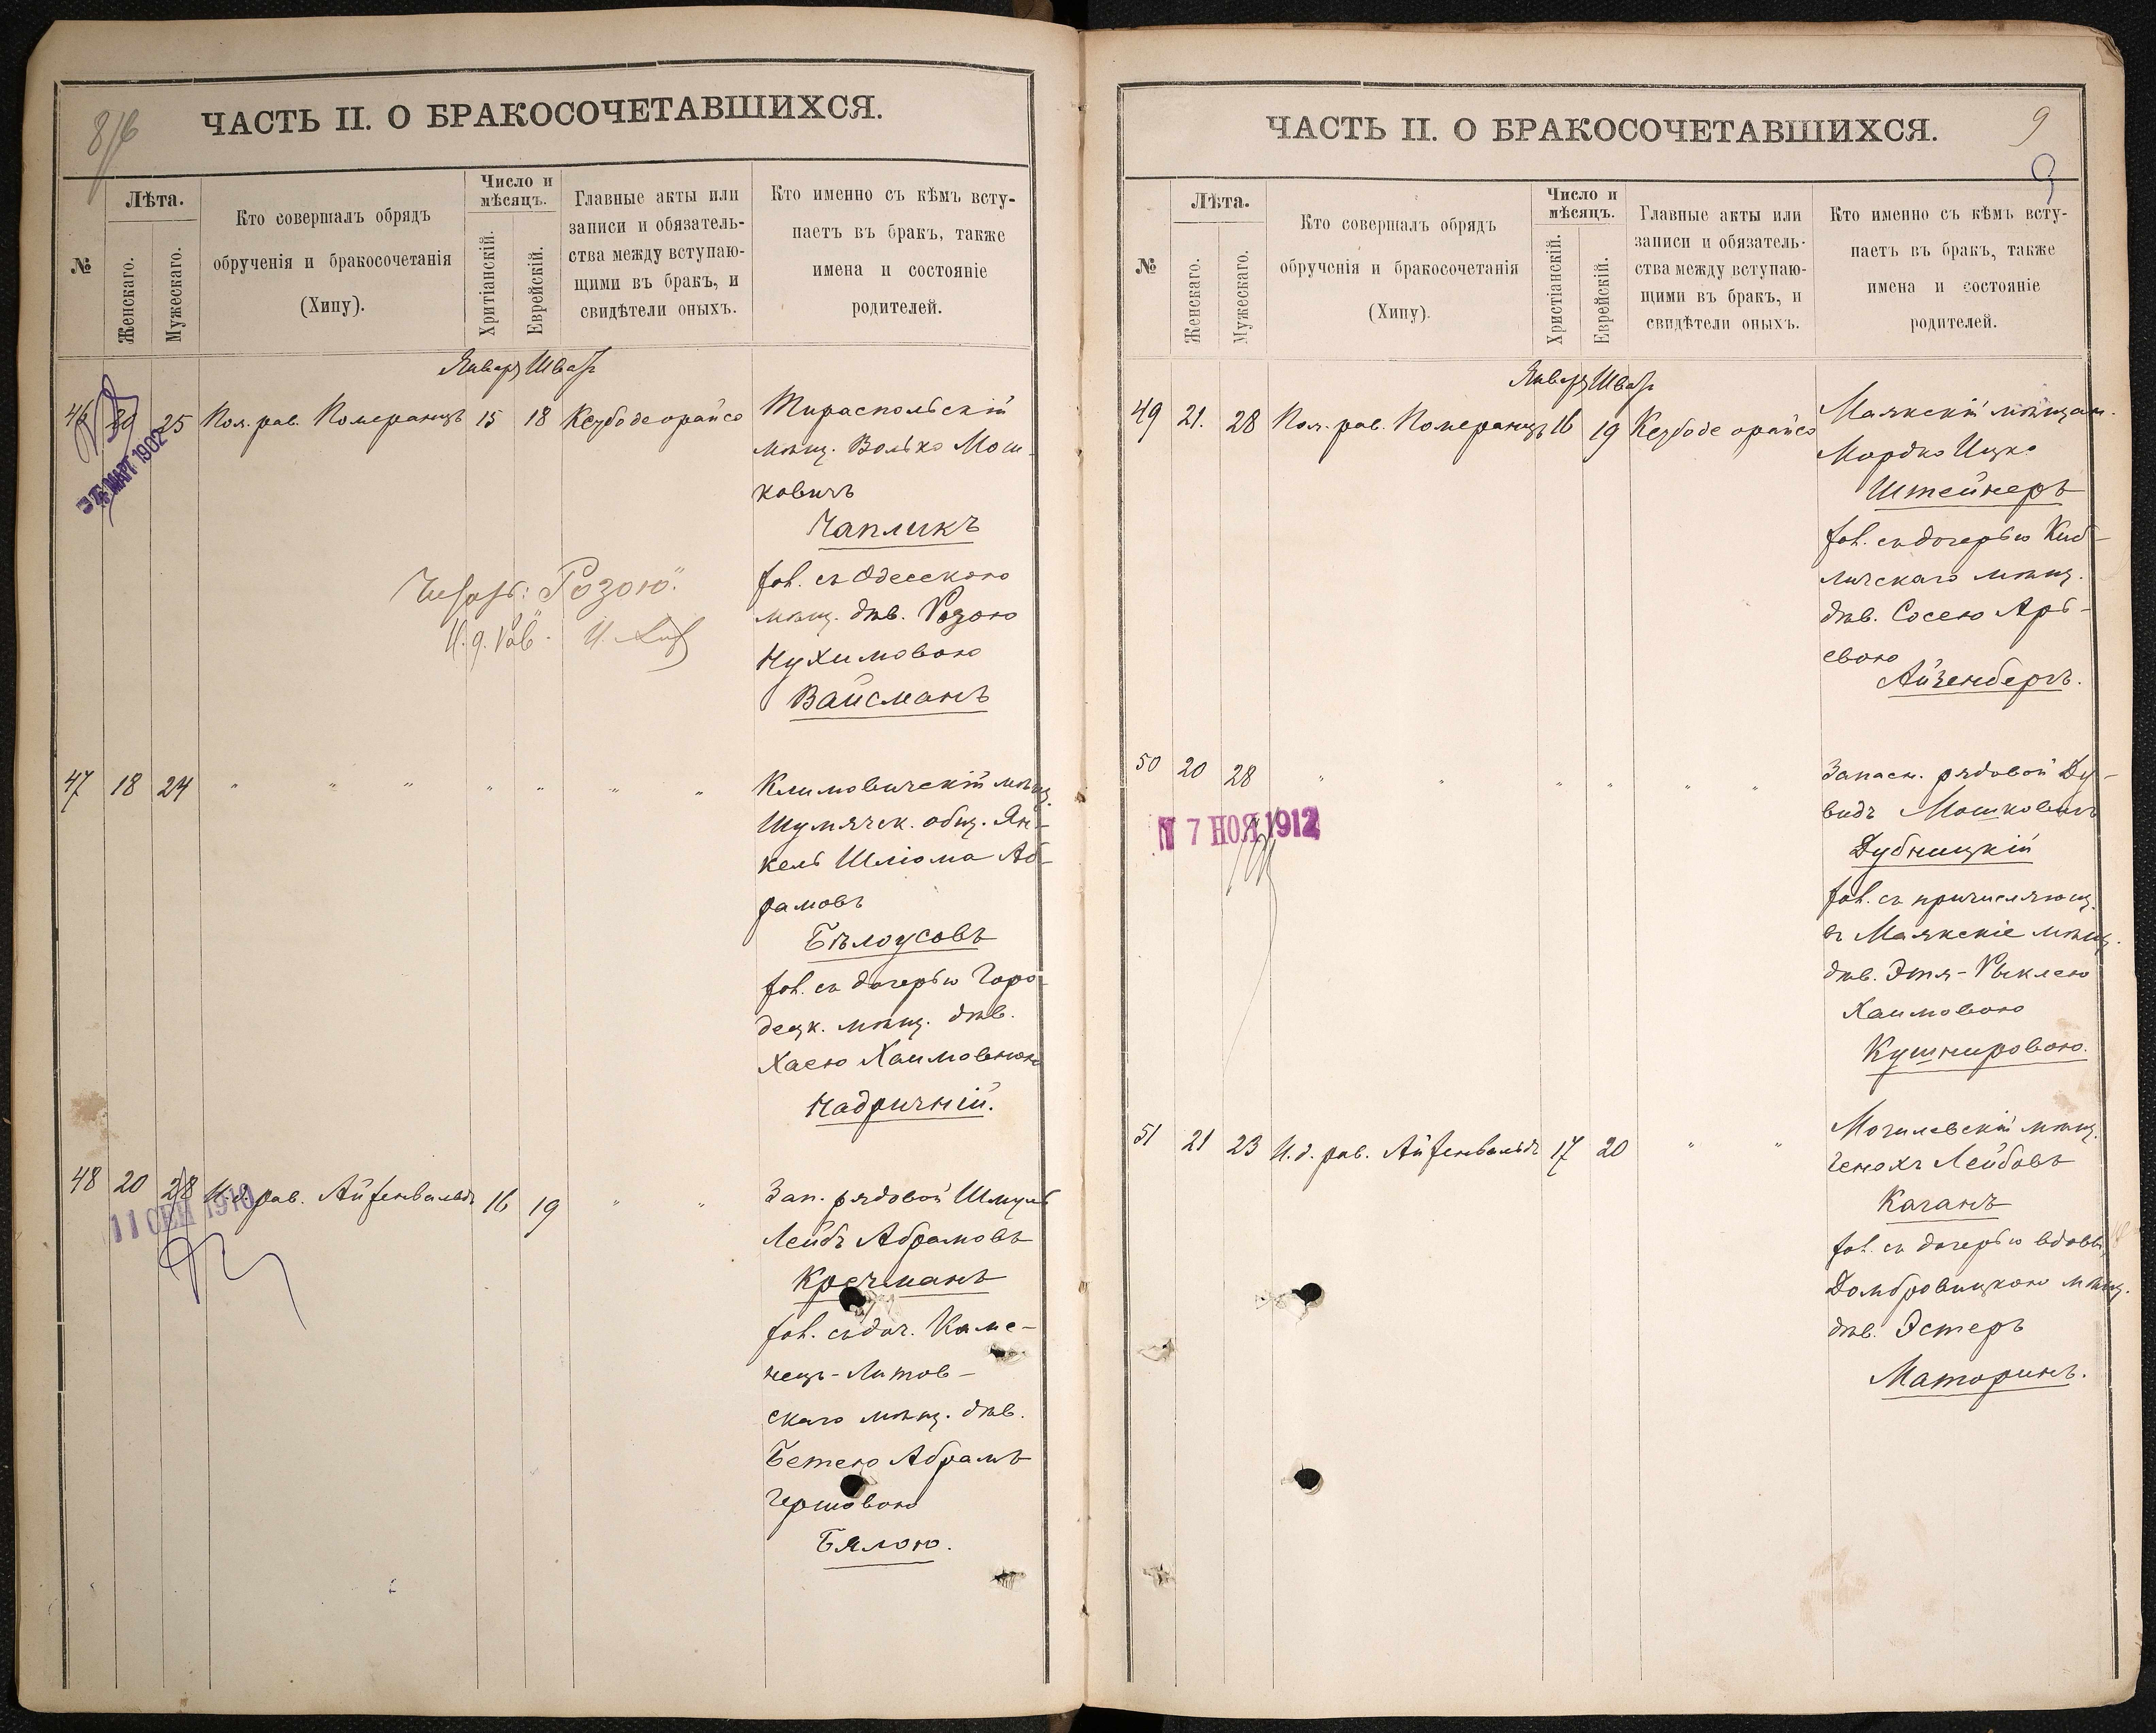 8/б
ЧАСТЬ II. О БРАКОСОЧЕТАВШИХСЯ.
№
Лѣта.
Женскаго.
Мужескаго.
Кто совершалъ обрядъ
обрученія и бракосочетанія
(Хипу).
Число и
мѣсяцъ.
Хритіанскій.
Еврейскій.
Главные акты или
записи и обязатель-
ства между вступаю-
щими въ бракъ, и
свидѣтели оныхъ.
Кто именно съ кѣмъ всту-
паетъ въ бракъ, также
имена и состояніе
родителей.
Январь Шватъ
46 20 25 Пом. рав. Померанцъ 15 18 Кезубоде орайсо
МАРТ 1902
Тираспольскій
мѣщ. Волько Мош-
ковичъ
Чапликъ
хол. съ Одесскою
мѣщ. дѣв. Розою
Нухимовою
Вайсманъ
Читать: "Розою".
И. д. Рав.
47 18 24 " " " " " " "
Климовичскій мѣщ.
Шумячск. общ. Ян-
кель Шліома Аб-
рамовъ
Бѣлоусовъ
хол. съ дочерью Горо-
децк. мѣщ. дѣв.
Хаею Хаимовною
Надричній.
48 20 28 И. д. рав. Айзенвальдъ 16 19 " "
11 СЕН 1910
Зап. рядовой Шмуль
Лейбъ Абрамовъ
Кречманъ
хол. съ доч. Каме-
нецъ-Литов-
скаго мѣщ. дѣв.
Бетею Абрамъ
Гершовою
Бялою.
9
9
ЧАСТЬ II. О БРАКОСОЧЕТАВШИХСЯ.
№
Лѣта.
Женскаго.
Мужескаго.
Кто совершалъ обрядъ
обрученія и бракосочетанія
(Хипу).
Число и
мѣсяцъ.
Христіанскій.
Еврейскій.
Главные акты или
записи и обязатель-
ства между вступаю-
щими въ бракъ, и
свидѣтели оныхъ.
Кто именно съ кѣмъ всту-
паетъ въ бракъ, также
имена и состояніе
родителей.
Январь Шватъ
49 21. 28 Пом. рав. Померанцъ 16 19 Кезубоде орайсо
Маякскій мѣщан.
Мордко Ицко
Штейнеръ
хол. съ дочерью Киб-
личскаго мѣщ.
дѣв. Сосею Арь-
евою
Айзенбергъ.
50 20 28 " " " " " "
7 НОЯ 1912
Запасн. рядовой Ду-
видъ Мошковичъ
Дубницкій
хол. съ причисляющ.
въ Маякскіе мѣщ.
дѣв. Этя-Рыклею
Хаимовою
Кушнировою.
51 21 23 И. д. рав. Айзенвальдъ 17 20 " "
Могилевскій мѣщ.
Генохъ Лейбовъ
Каганъ
хол. съ дочерью вдовы,
Домбровицкою мѣщ.
дѣв. Эстеръ
Маторинъ.